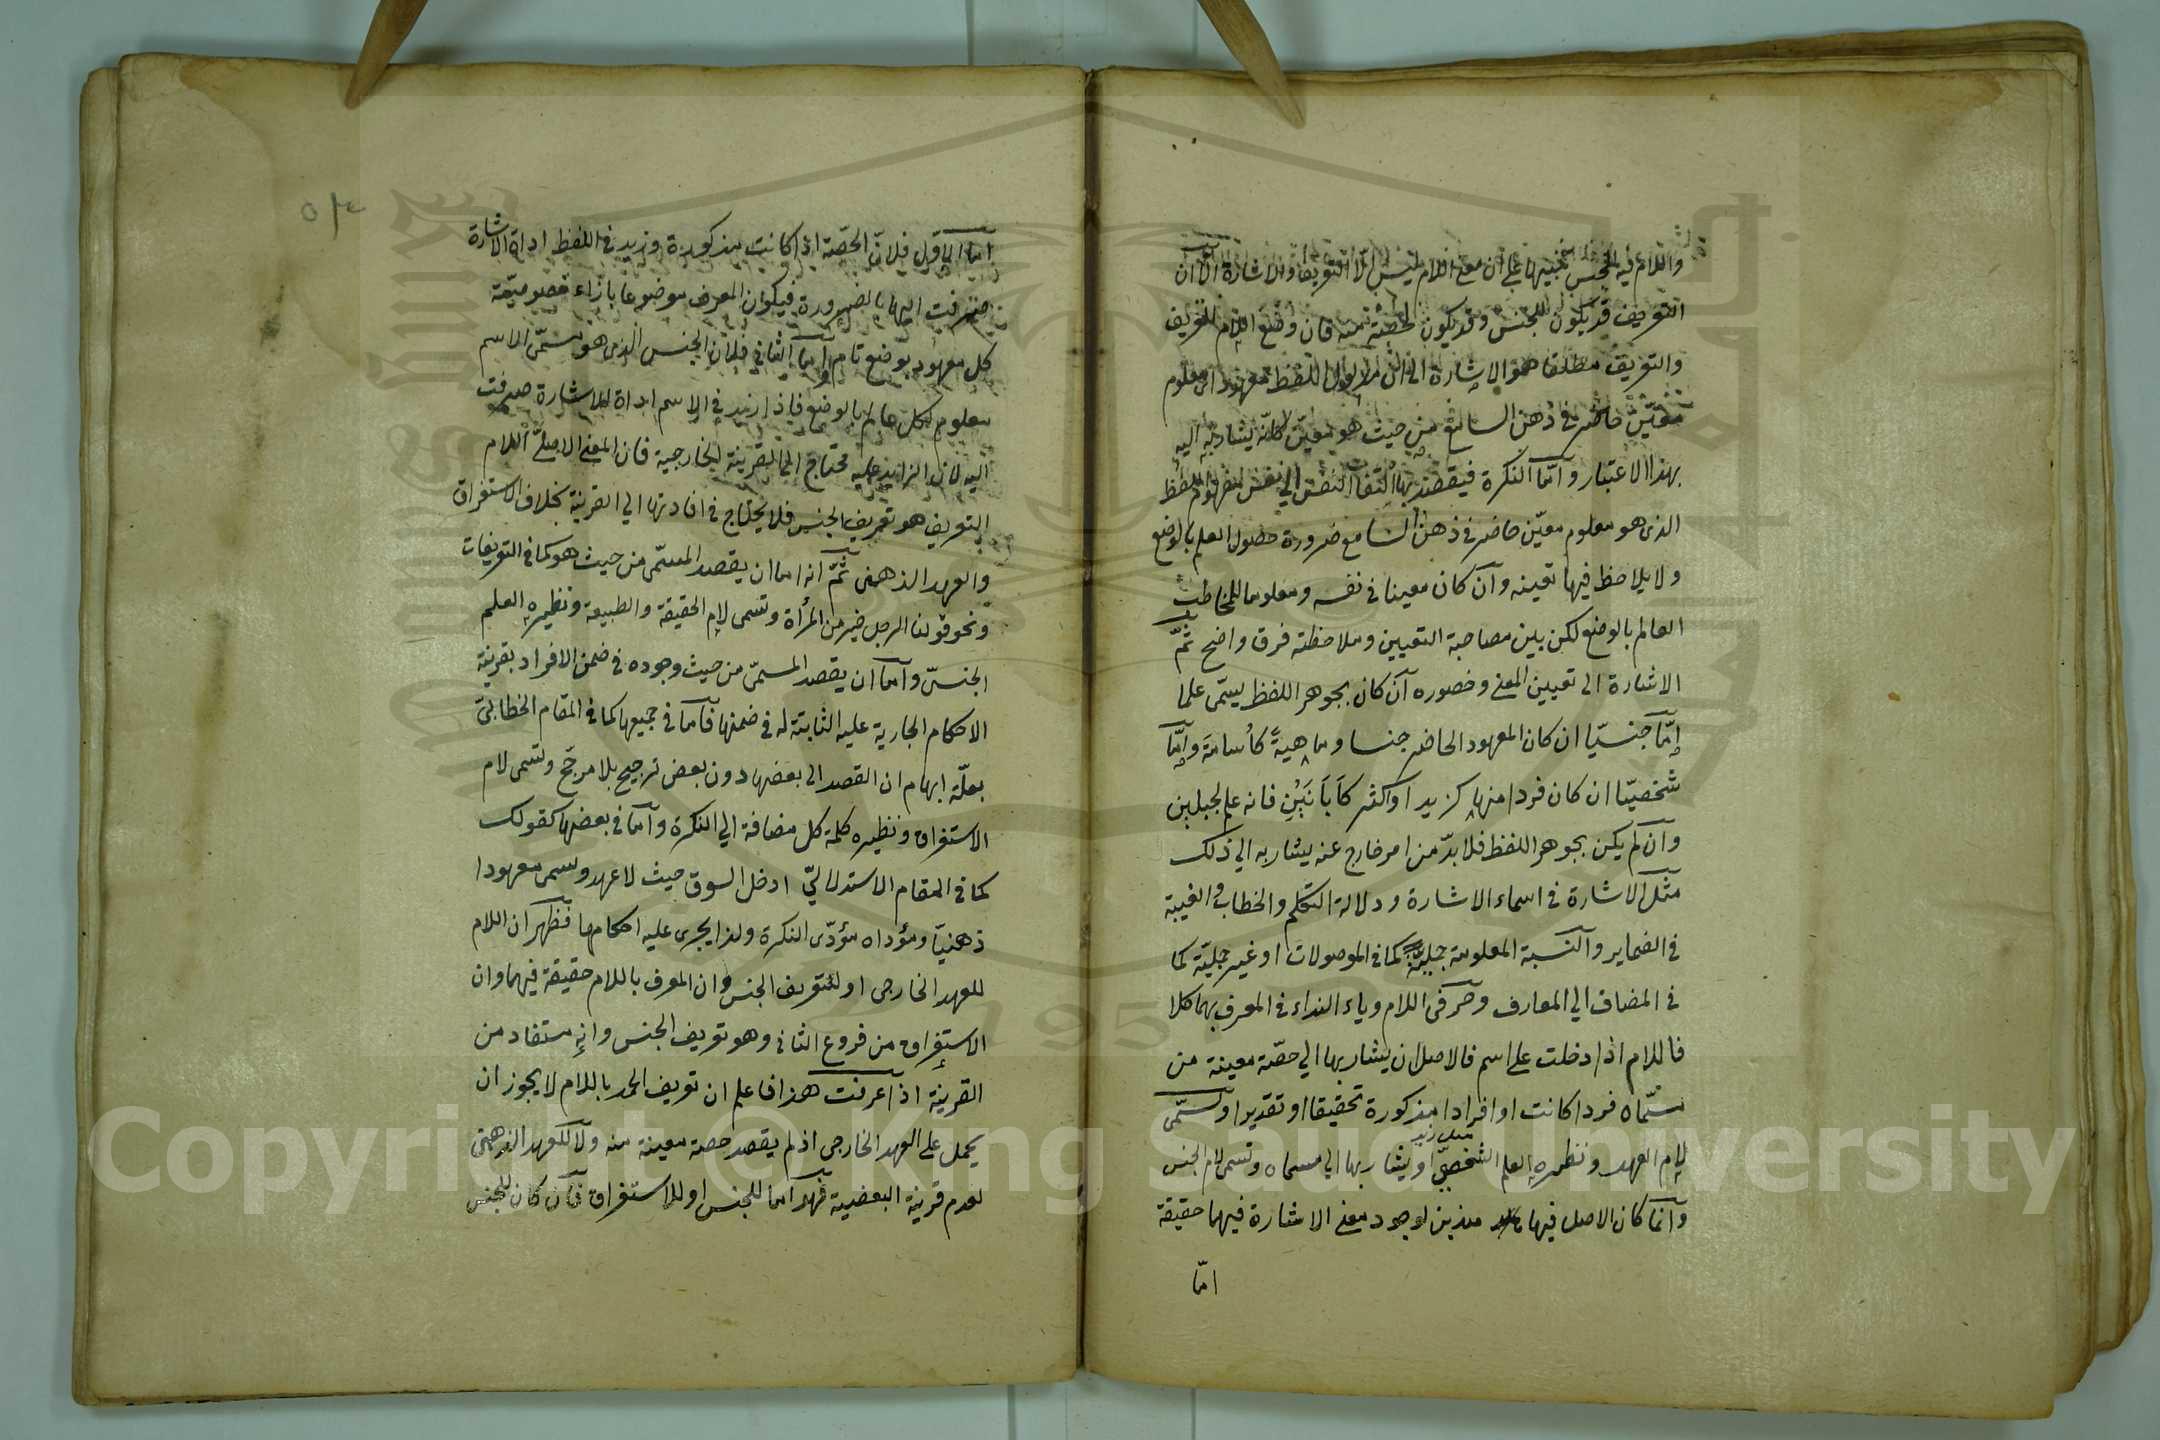 واللام فيه للجنس تنبيها على ان معنى اللام ليس الا التعريف والاشارة الا ان
التعريف قد يكون للجنس وقد يكون لحصة منه فان وضع اللام للتعريف
والتعريف مطلقا هو الاشارة الى ان مدلول اللفظ معهود اى معلوم
معيّن حاضر فى ذهن السامع من حيث هو معيّن كانّه يشار به اليه
بهذا الاعتبار وامّا النكرة فيقصد بها التفات النفس الى نفس مفهوم اللفظ
الذى هو معلوم معيّن حاضر فى ذهن السامع ضرورة حصول العلم بالوضع
ولا يلاحظ فيها تعينه وان كان معينا فى نفسه ومعلوما للمخاطب
العالم بالوضع لكن بين مصاحبة التعيين وملاحظته فرق واضح ثمّ
الاشارة الى تعيين المعنى وحضوره ان كان بجوهر اللفظ يسمّى علما
إمّا جنسيّا ان كان المعهود الحاضر جنسا وماهيةً كأسامَة وإمّا
شخصيّا ان كان فردا منها كزيد او اكثر كأَبَانَيْن فانه علم لجبلين
وان لم يكن بجوهر اللفظ فلا بدّ من امر خارج عنه يشار به الى ذلك
مثل الاشارة فى اسماء الاشارة ودلالة التكلم والخطاب والغيبة
فى الضماير والنسبة المعلومة جليّة كما فى الموصولات او غير جليّة كما
فى المضاف الى المعارف وحرفى اللام وياء النداء فى المعرف بهما كلا
فاللام اذا دخلت على اسم فالاصل ان يشار بها الى حصّة معينة من
مسمّاه فردا كانت او افرادا مذكورة تحقيقا او تقديرا وتسمّى
لام العهد ونظيره العلم الشخصيّ او يشار بها الى مسماه وتسمى لام الجنس
وانما كان الاصل فيها هذين لوجود معنى الاشارة فيهما حقيقة
امّا
اما الاول فلانّ الحصّة اذا كانت مذكورة وزيد فى اللفظ اداة الاشارة
صرفت اليها بالضرورة فيكون المعرف موضوعا بازاء خصوصيّة
كل معهود بوضع تام واما الثانى فلان الجنس الذى هو مسمّى الاسم
معلوم لكل عالم بالوضع فاذا زيد فى الاسم اداة للاشارة صرفت
اليه لان الزايد عليه محتاج الى القرينة الخارجية فان المعنى الاصلىّ اللام
التعريف هو تعريف الجنس فلا يحتاج فى افادتها الى القرينة بخلاف الاستغراق
والعهد الذهنى ثمّ انه اما ان يقصد المسمّى من حيث هو كما فى التعريفات
ونحو قولنا الرجل خير من المرأة وتسمى لام الحقيقة والطبيعة ونظيره العلم
الجنسىّ وامّا ان يقصد المسمّى من حيث وجوده فى ضمن الافراد بقرينة
الاحكام الجارية عليه الثابتة له فى ضمنها فامّا فى جميعها كما فى المقام الخطابىّ
بعلّة ابهام ان القصد الى بعضها دون بعض ترجيح بلا مرجّح وتسمى لام
الاستغراق ونظيره كلمة كل مضافة الى النكرة وامّا فى بعضها كقولك
كما فى المقام الاستدلالىّ ادخل السوق حيث لا عهد ويسمى معهودا
ذهنيّا ومؤداه مؤدّى النكرة ولذا يجرى عليه احكامها فظهر ان اللام
للعهد الخارجى او لتعريف الجنس وان المعرف باللام حقيقة فيهما وان
الاستغراق من فروع الثانى وهو تعريف الجنس وانه مستفاد من
القرينة اذا عرفت هذا فاعلم ان تعريف الحمد باللام لا يجوز ان
يحمل على العهد الخارجى اذ لم يقصد حصة معينة منه ولا للعهد الذهنى
لعدم قرينة البعضية فهو اما للجنس او للاستغراق فان كان للجنس
Copyright © King Saud University
1957